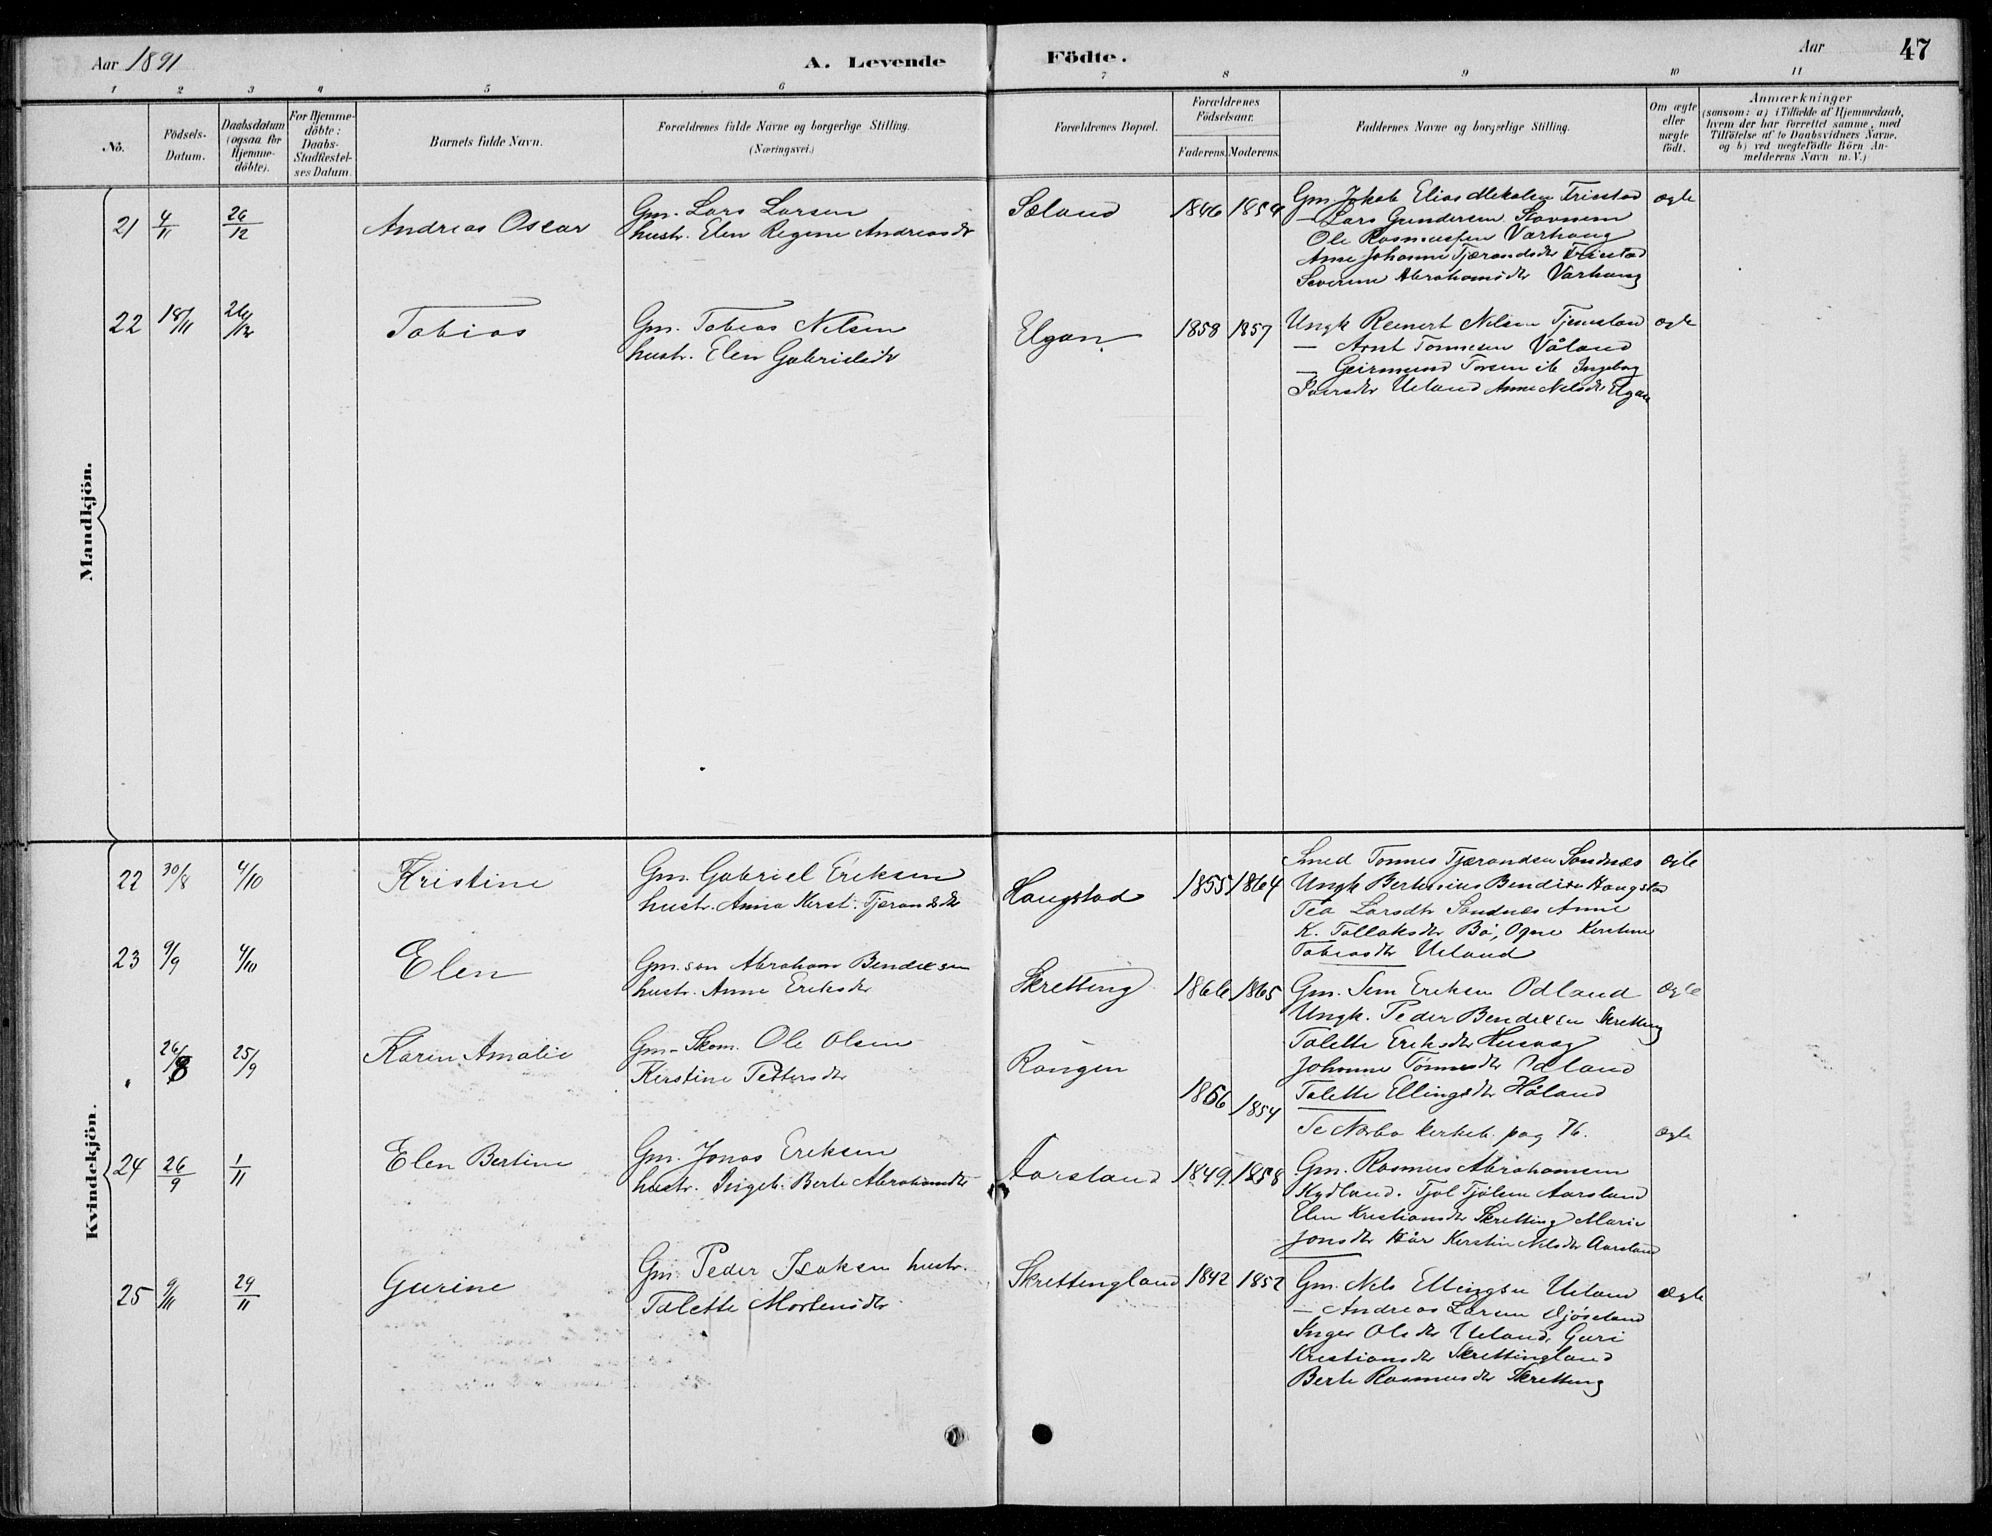 Aar 1891
A. Levende
Födte.
Aar
47
1 2 3 4 5 6 7 8 9 10 11
No.
Födsels-
Datum.
Daabsdatum
(ogsaa for
Hjemme-
döbte).
For Hjemme-
döbte:
Daabs-
Stadfæstel-
ses Datum.
Barnets fulde Navn.
Forældrenes fulde Navne og borgerlige Stilling.
(Næringsvei.)
Forældrenes Bopæl.
Forældrenes
Födselsaar.
Faderens. Moderens.
Faddernes Navne og borgerlige Stilling.
Om ægte
eller
uægte
født.
Anmærkninger
(saasom: a) i Tilfælde af Hjemmedaab,
hvem der har forrettet samme, med
Tilföielse af to Daabsvidners Navne,
og b) ved uegtefödte Börn An-
melderens Navn m. V.)
Mandkjön.
21 4/11 26/12 Andreas Oscar
Gm. Lars Larsen
hustr. Elen Regine Andreasdtr
Sæland
1846 1854
Gm. Jakob Elias Mikalsen Friestad
— Lars Gundersen Stavnem
Ole Rasmussen Varhaug
Anne Johanne Tjærandsdtr Friestad
Severine Abrahamsdtr Varhaug
ægte
22 18/11 26/12 Tobias
Gm. Tobias Nilsen
hustr. Elen Gabrielsdtr
Elgan
1858 1857
Ungk Reinert Nilsen
— Arnt Tønnesen Våland
— Geirmund Torsen ib Ingebog
Iversdtr Ueland Anne Nilsdtr Elgan
ægte
Kvindekjön.
22 30/8 4/10 Kristine
Gm. Gabriel Eriksen
hustr. Anna Kerst. Tjerandsdtr
Haugstad
1855 1864
Smed Tønnes Tjærandsen Sandnæs
Ungk Bertinius Bendixe Haugstad
Tea Larsdtr Sandnæs Anne
K. Tollaksdtr Bø, Ogne Kerstine
Tobiasdtr Ueland
ægte
23 9/9 4/10 Elen
Gm. søn Abraham Bendixsen
hustr. Anne Eriksdtr
Skretting
1866 1865
Gm. Sem Eriksen Odland
Ungk. Peder Bendixsen Skretting
Talette Eriksdtr
Johanne Tønnesdtr Odland
Talette Ellingsdtr Håland
Ægte
26/8 25/9 Karin Amalie
Gm. Skom. Ole Olsen
Kirstine Pettersdtr
Rongen
1856 1854
Se Nærbø kirkeb. pag 76.
Ægte
24 26/9 1/11 Elen Bertine
Gm. Jonas Eriksen
hustr. Ingeb. Berte Abrahamsdtr
Aarsland
1849. 1858
Gm. Rasmus Abrahamsen
Kydland. Tjøl Tjølsen Aarsland
Elen Kristiansdtr Skretting Marie
Jonsdtr Hår Kerstine Nilsdtr Aarsland
25 9/11 29/11 Gurine
Gm. Peder Isaksen hustr.
Talette Mortensdtr
Skrettingland
1842 1852
Gm. Nils Ellingsen Ueland
— Andreas Larsen Djøseland
Inger Olsdtr Ueland, Guri
Kristiansdtr Skrettingland
Berte Rasmusdtr Skretting
Ægte